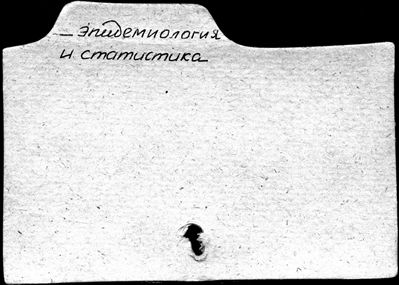 — эпидемиология
и статистика